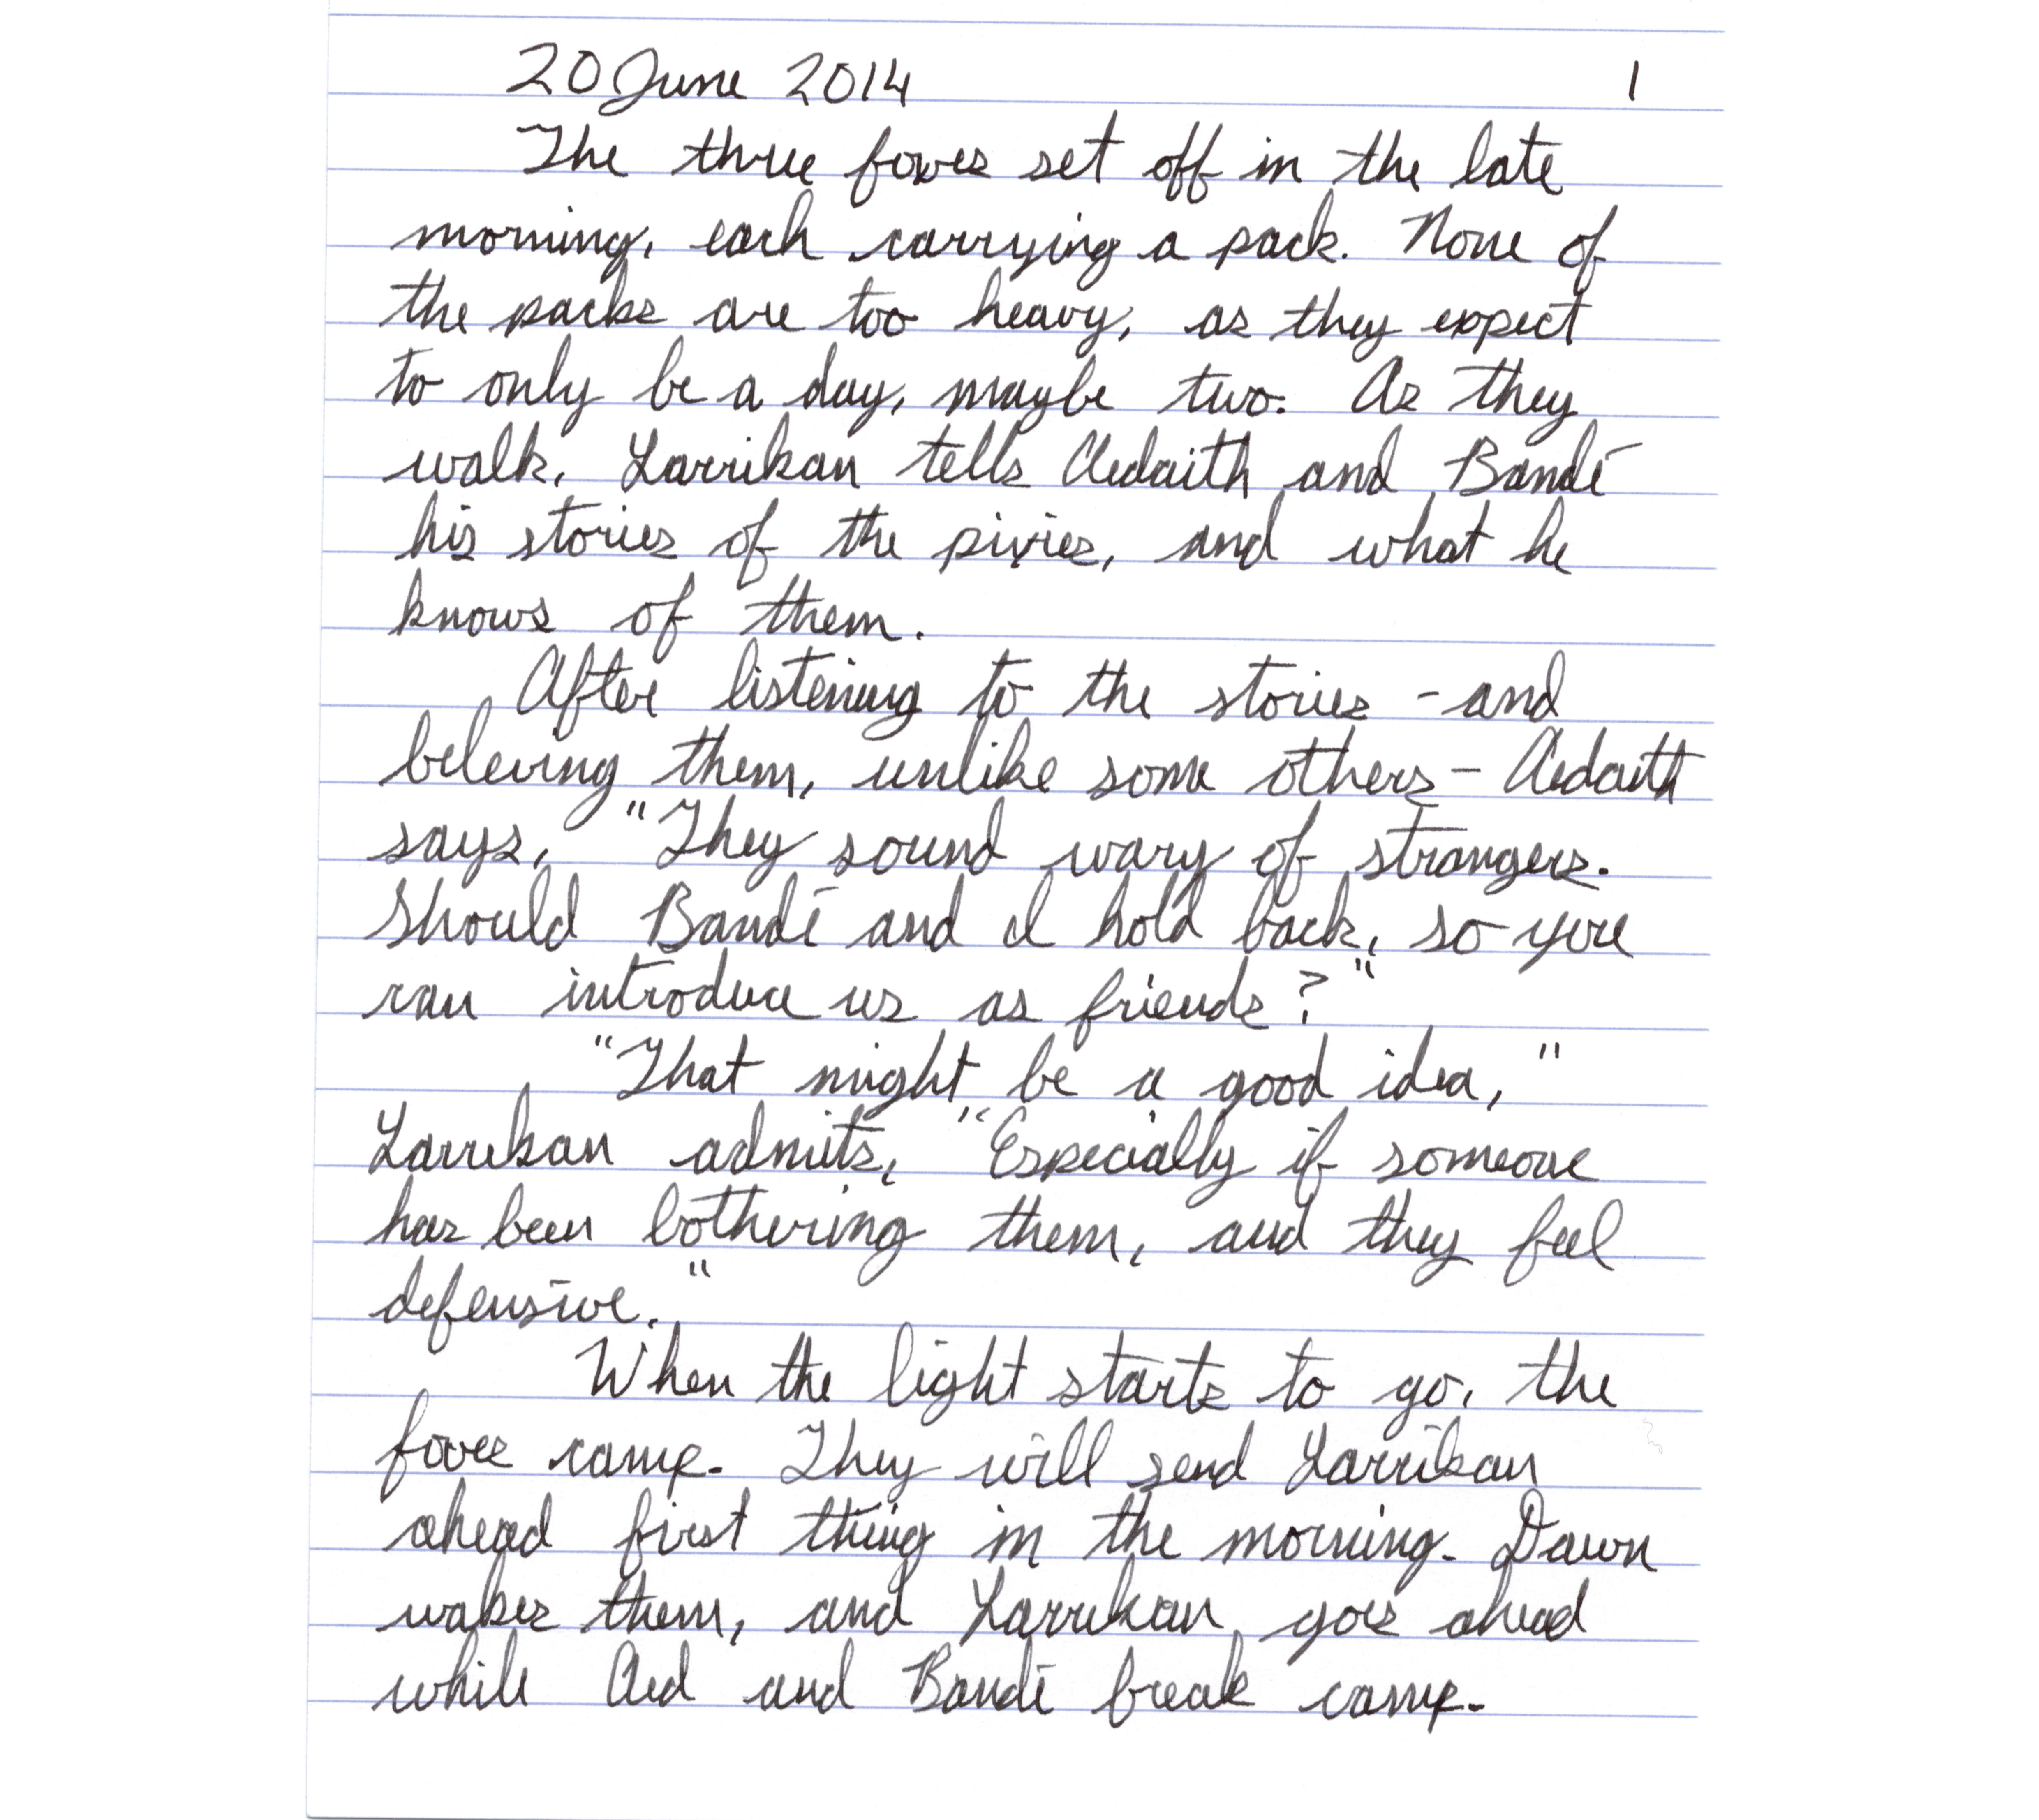 20 June 2014 1
The three foxes set off in the late
morning, each carrying a pack. None of
the packs are too heavy, as they expect
to only be a day, maybe two. As they
walk, Larrikan tells Aedaith and Bandé
his stories of the pixies, and what he
knows of them.
After listening to the stories - and
beleving them, unlike some others - Aedaith
says, "They sound wary of strangers.
Should Bandé and I hold back, so you
can introduce us as friends?"
"That might be a good idea,"
Larrikan admits, "Especially if someone
has been bothering them, and they feel
defensive."
When the light starts to go, the
foxes camp. They will send Larrikan
ahead first thing in the morning. Dawn
wakes them, and Larrikan goes ahead
while Aed and Bandé break camp.